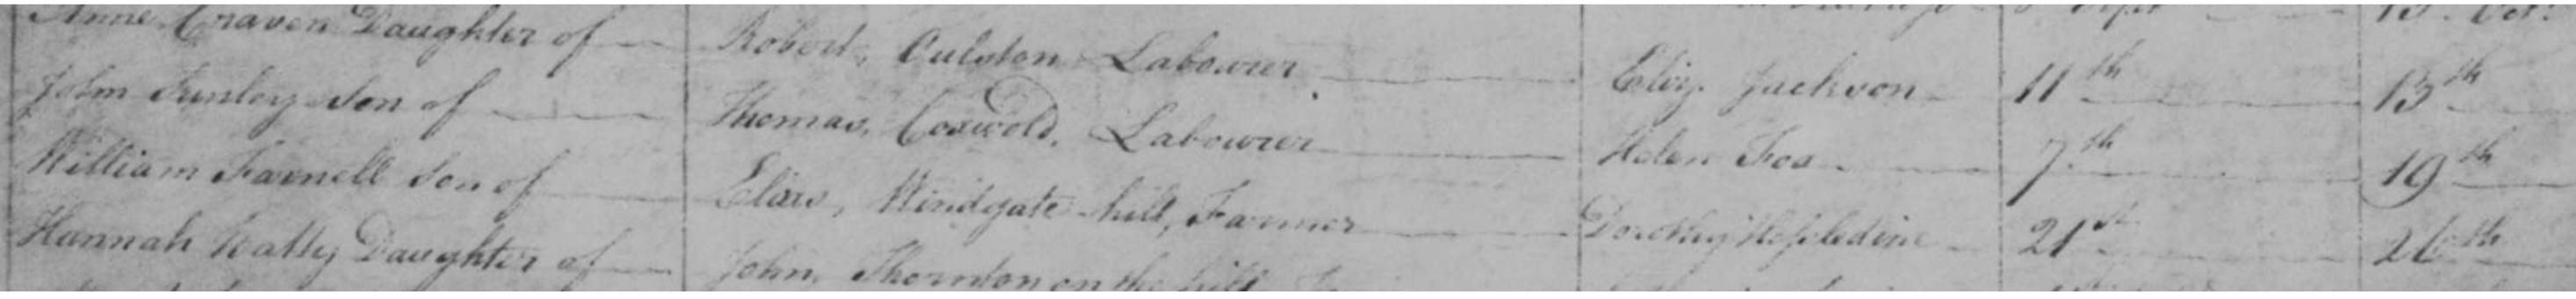 Anne Craven Daughter of Robert, Oulston Labourer Eliz. Jackson 11th 13th
John Sunley Son of Thomas, Coxwold, Labourer Helen Fox 7th 19th
William Farnell Son of Elias, Windgate hill, Farmer Dorothy 21st 26th
Hannah Daughter of John, Thornton on the hill